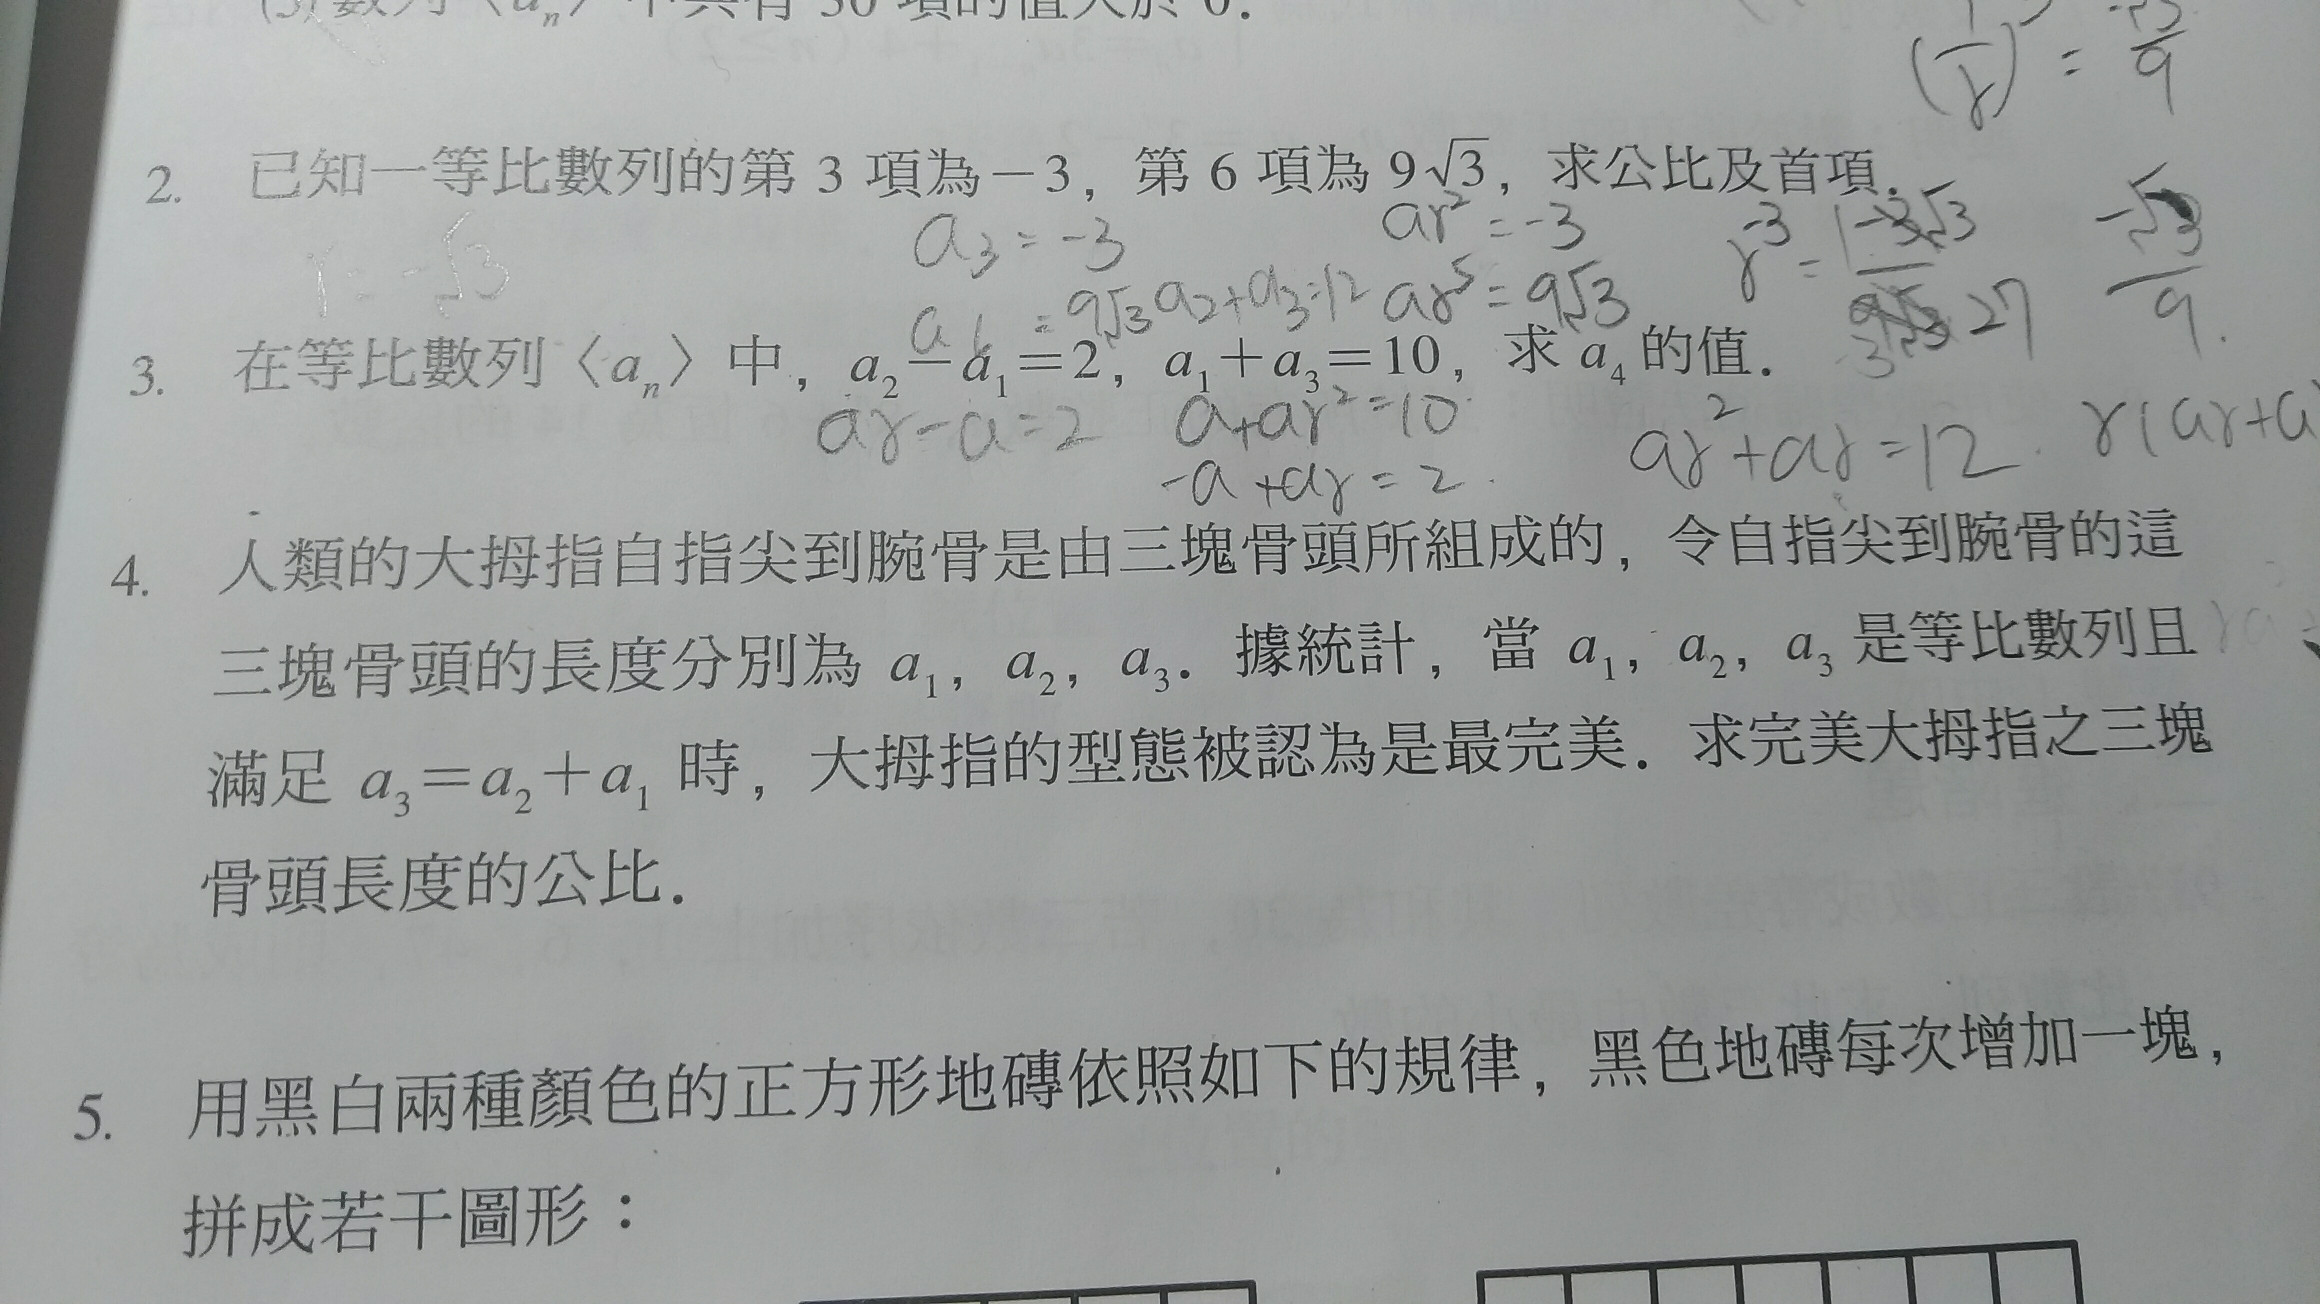 (3) 數列〈aₙ〉中共有 30 項的值大於 0.
(1/r)³ = -√3/9
2. 已知一等比數列的第 3 項為－3，第 6 項為 9√3，求公比及首項.
a₃ = -3 ar² = -3
r = -√3
a₆ = 9√3 a₂+a₃=12 ar⁵ = 9√3
-√3/9.
3. 在等比數列〈aₙ〉中，a₂－a₁＝2，a₁＋a₃＝10，求 a₄ 的值.
ar-a=2 a+ar²=10 ar²+ar=12. r(ar+a
-a+ar=2.
4. 人類的大拇指自指尖到腕骨是由三塊骨頭所組成的，令自指尖到腕骨的這
三塊骨頭的長度分別為 a₁，a₂，a₃. 據統計，當 a₁，a₂，a₃ 是等比數列且
滿足 a₃＝a₂＋a₁ 時，大拇指的型態被認為是最完美. 求完美大拇指之三塊
骨頭長度的公比.
5. 用黑白兩種顏色的正方形地磚依照如下的規律，黑色地磚每次增加一塊，
拼成若干圖形：